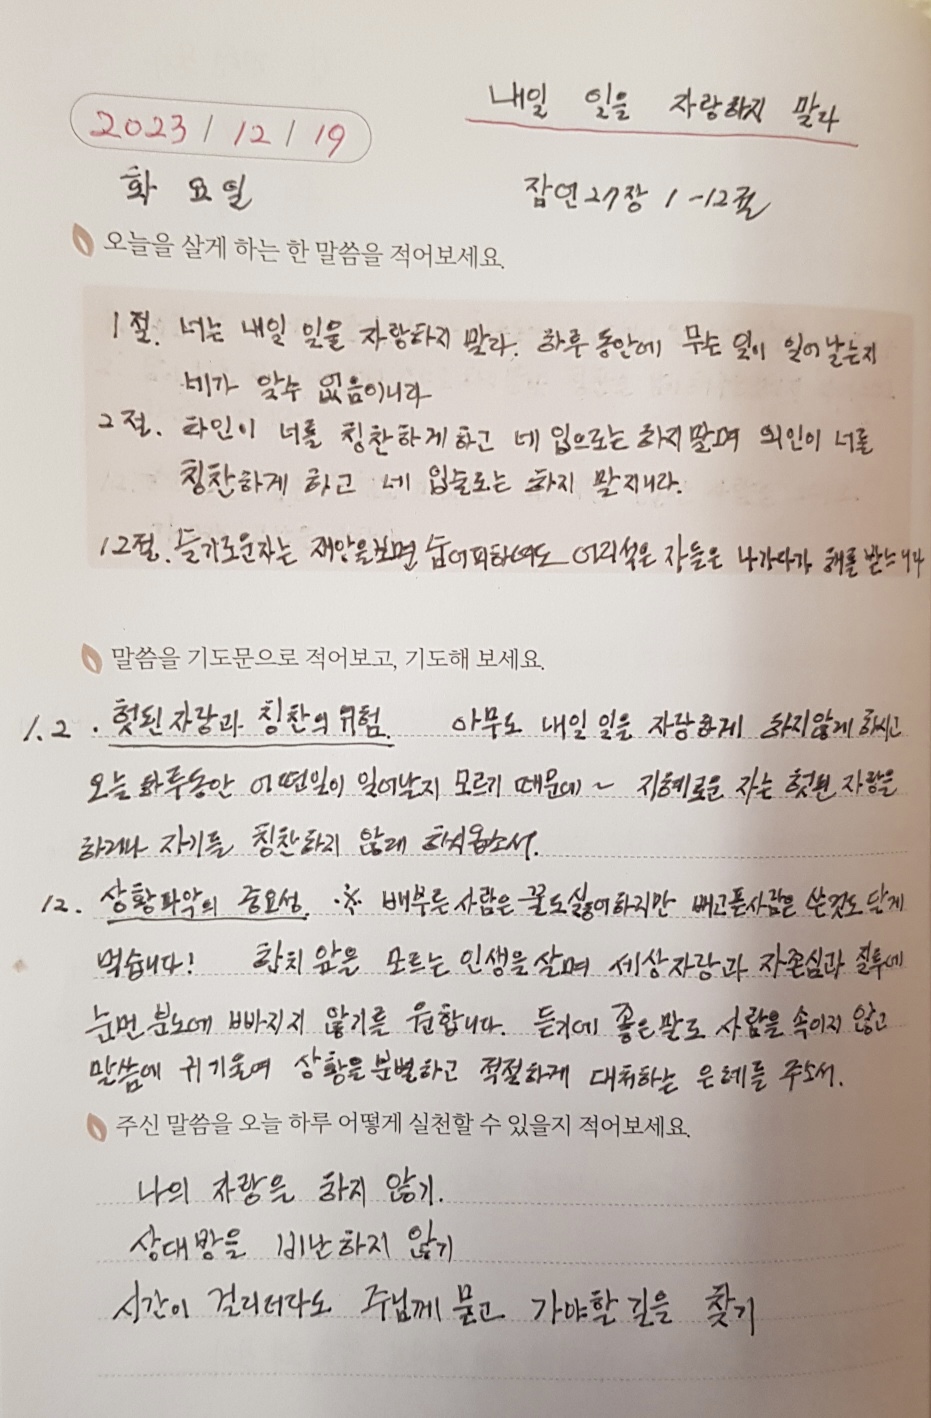 내일 일을 자랑하지 말라
2023 / 12 / 19
화 요일
잠언 27장 1 -12절
오늘을 살게 하는 한 말씀을 적어보세요.
1절. 너는 내일 일을 자랑하지 말라. 하루 동안에 무슨 일이 일어날는지
네가 알수 없음이니라
2절. 타인이 너를 칭찬하게 하고 네 입으로는 하지말며 외인이 너를
칭찬하게 하고 네 입술로는 하지 말지니라.
12절. 슬기로운자는 재앙을보면 숨어피하여도 어리석은 자들은 나가다가 해를 받느니라
말씀을 기도문으로 적어보고, 기도해 보세요.
1.2 . 헛된 자랑과 칭찬의 위험. 아무도 내일 일을 자랑하게 하지않게 하시고
오늘 하루동안 어떤일이 일어날지 모르기 때문에 ~ 지혜로운 자는 헛된 자랑을
하거나 자기를 칭찬하지 않게 하시옵소서.
12. 상황파악의 중요성. ※ 배부른 사람은 꿀도싫어하지만 배고픈사람은 쓴것도 달게
먹습니다! 한치 앞을 모르는 인생을 살며 세상자랑과 자존심과 질투에
눈먼 분노에 빠지지 않기를 원합니다. 듣기에 좋은말로 사람을 속이지 않고
말씀에 귀 기울여 상황을 분별하고 적절하게 대처하는 은혜를 주소서.
주신 말씀을 오늘 하루 어떻게 실천할 수 있을지 적어보세요.
나의 자랑을 하지 않기.
상대방을 비난하지 않기
시간이 걸리더라도 주님께 묻고 가야할 길을 찾기